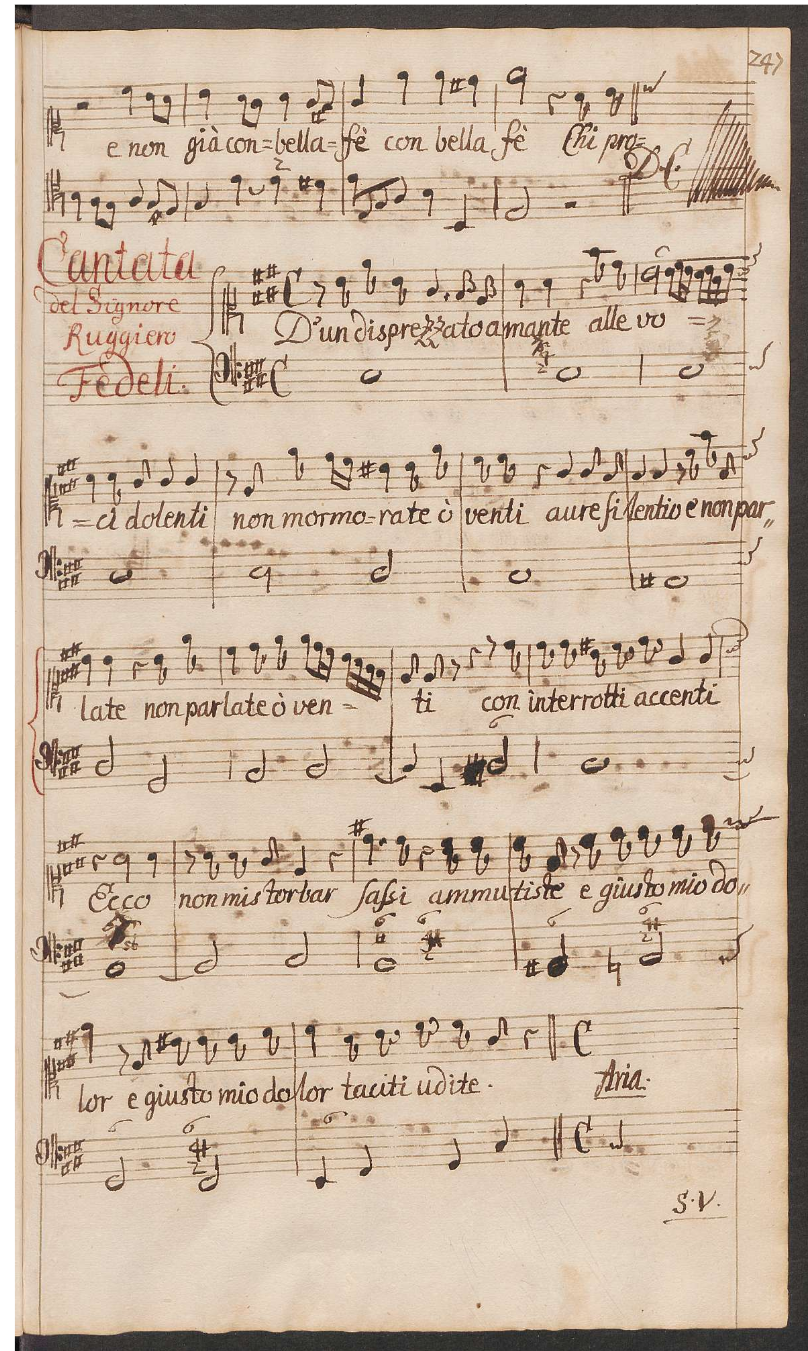 247
e non già con=bella=fè con bella fè Chi pro=
D.C.
Cantata
del Signore
Ruggiero
Fedeli.
D'un disprezzato amante alle vo =
=ci dolenti non mormo=rate ò venti aure silentio e non par„
late non parlate ò ven= ti con interrotti accenti
Ecco non mi storbar sassi ammutiste e giusto mio do„
lor e giusto mio dolor taciti udite.
Aria.
S.V.